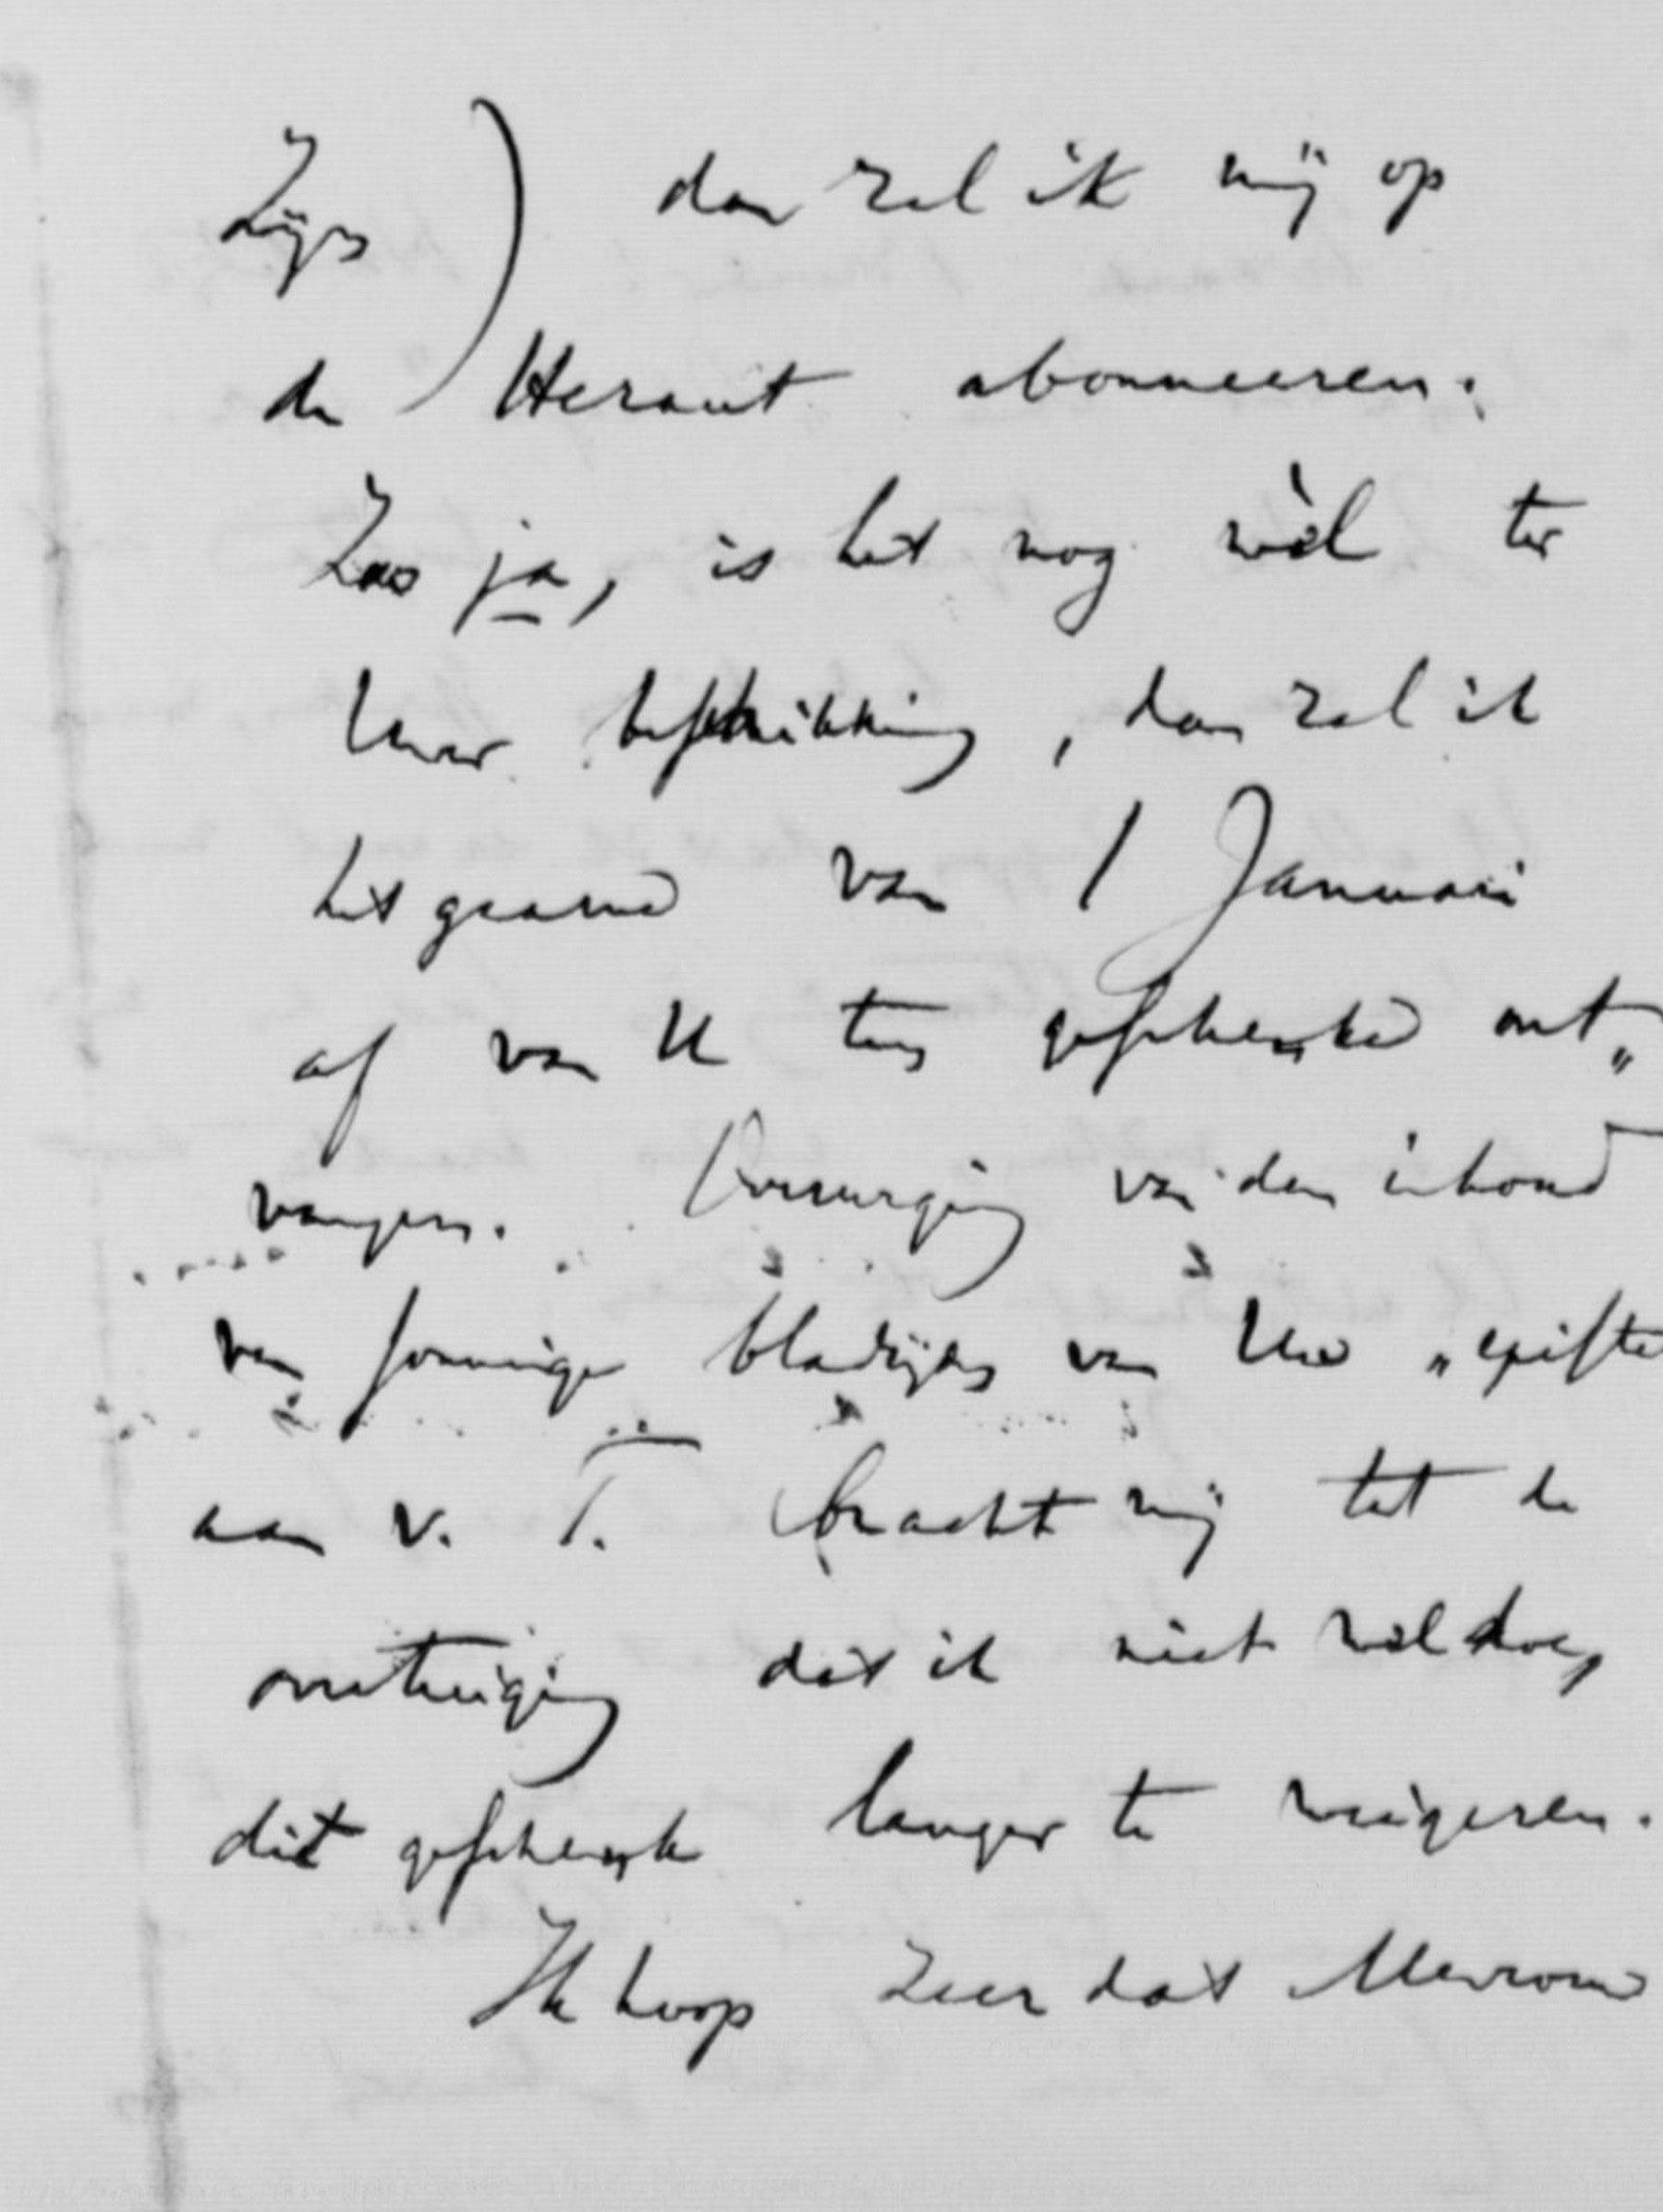 Zijn) dan zal ik mij op
de Heraut abonneeren.
Zoo ja, is het nog wèl ter
Uwer beschikking, dan zal ik
het gaarne van 1 Januari
af van U ten geschenke ont„
vangen. Overweging van den inhoud
van sommige bladzijden van Uw „episte
aan v. T. bracht mij tot de
overtuiging dat ik niet wel doe,
dit geschenk langer te weigeren.
Ik hoop zeer dat Mevrouw